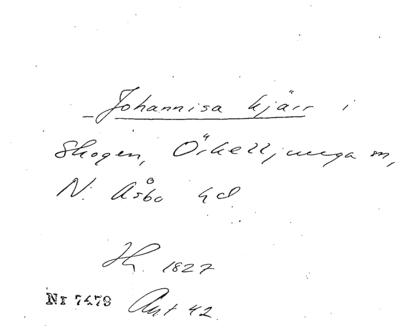 Johannisa kjärr i
Skogen, Örkelljunga sn,
N. Åsbo hd
Sk. 1827
Nr 7479 Ant 42